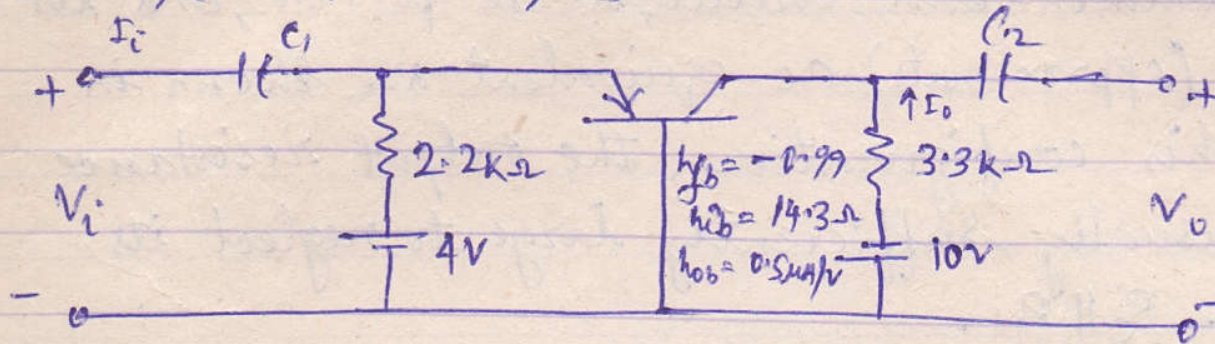 Ii C1 C2
+ ↑Io +
2.2kΩ hfb = -0.99 3.3kΩ
Vi hib = 14.3Ω Vo
4V hob = 0.5μA/V 10V
- -